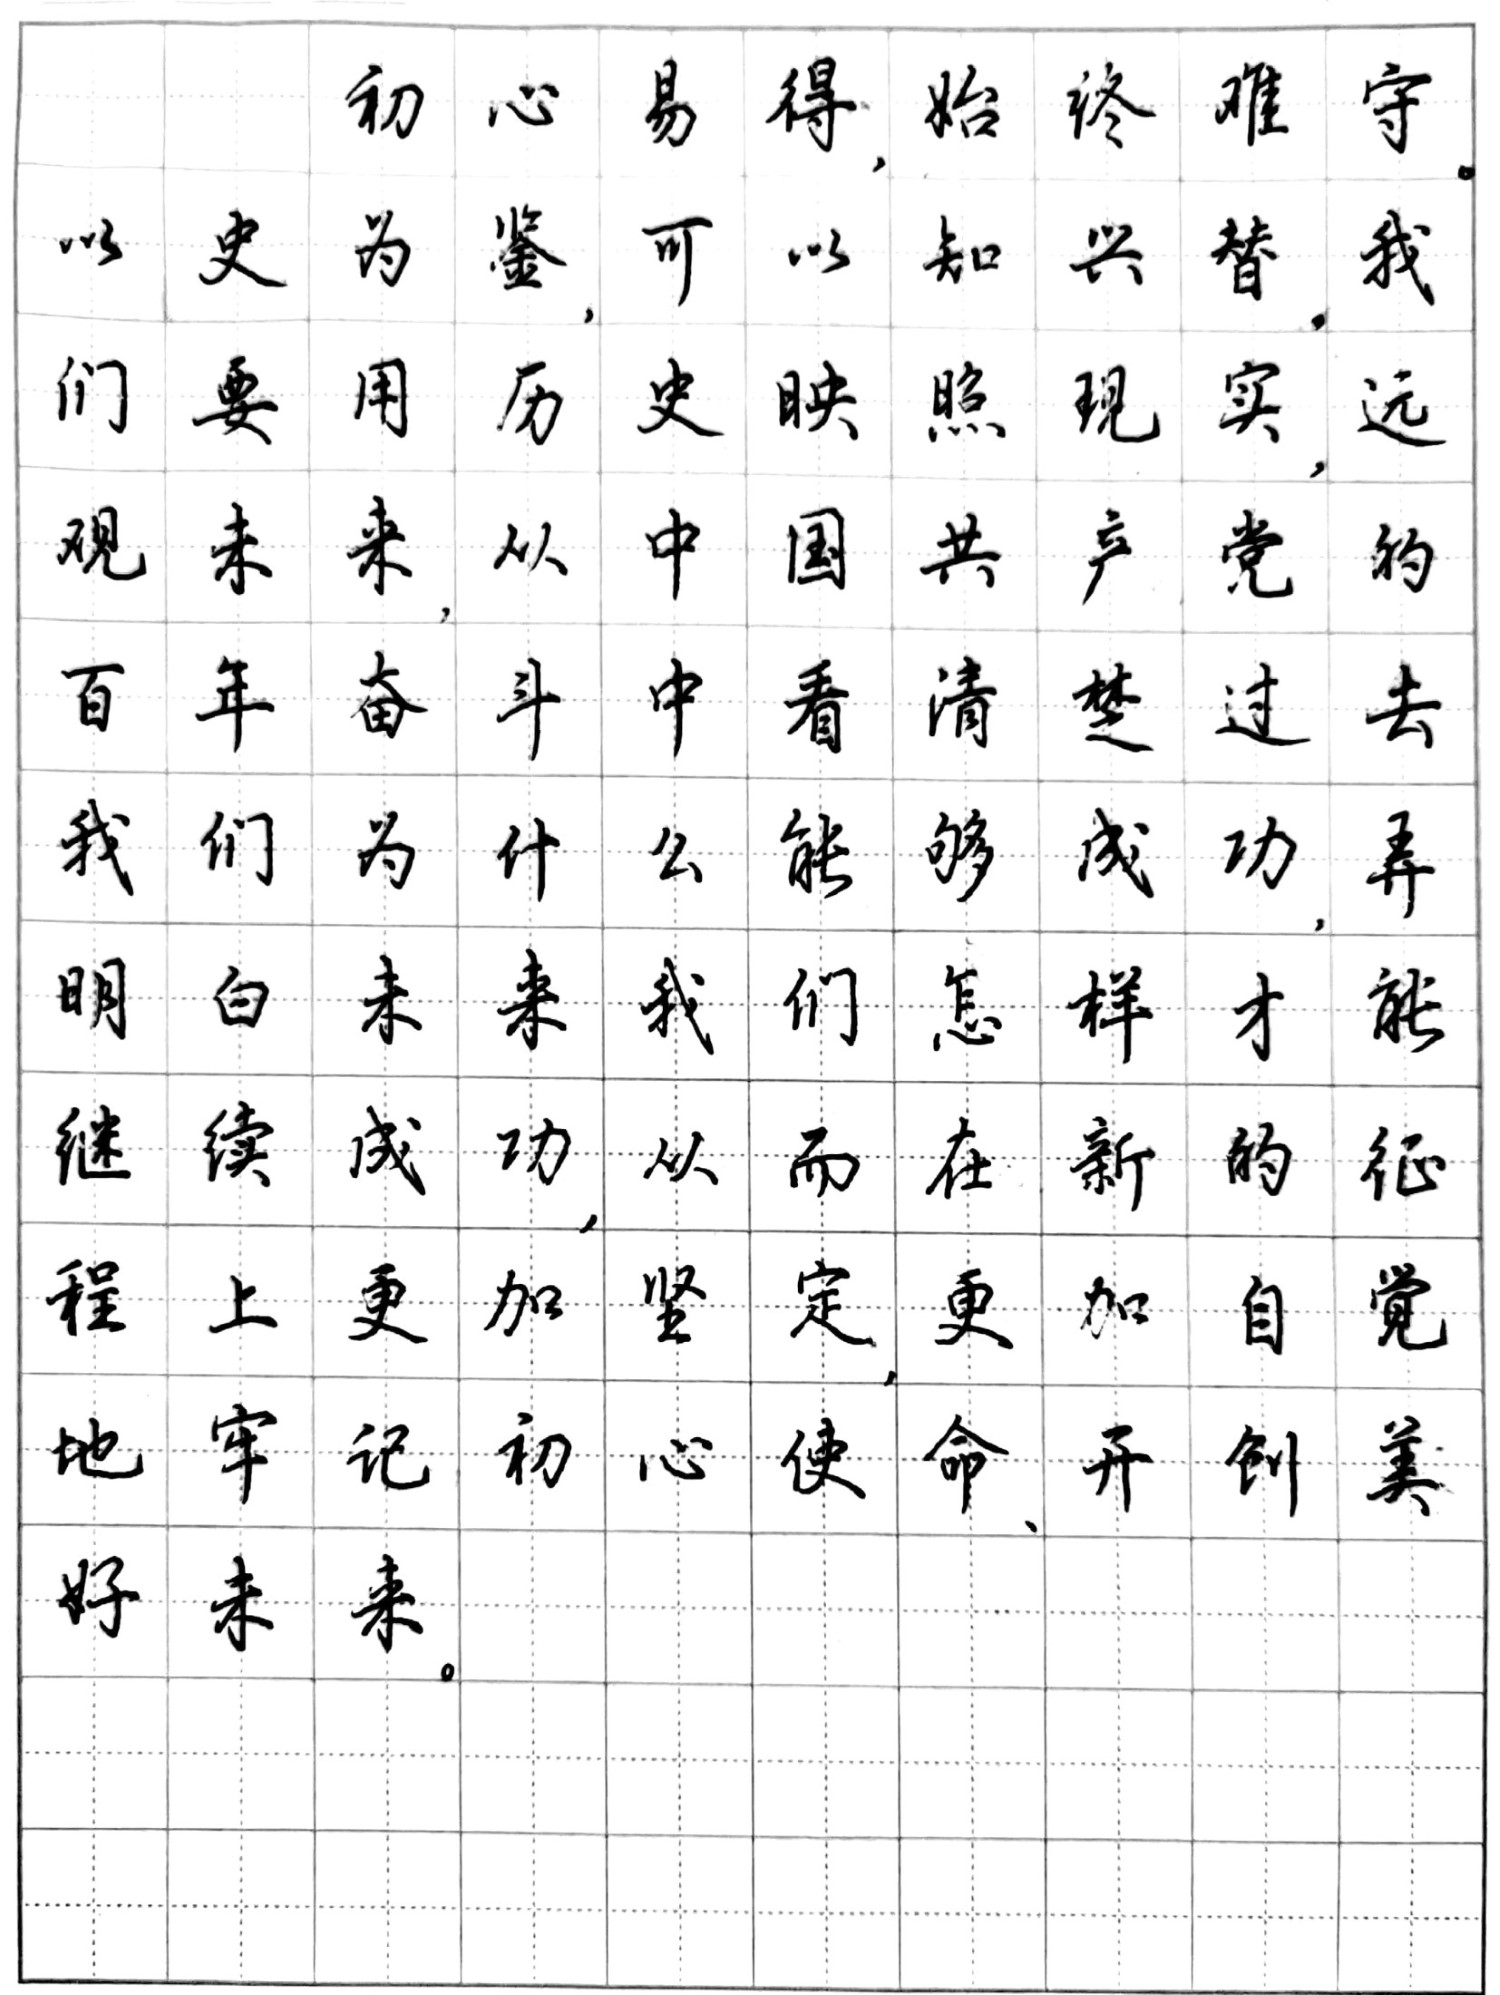 初心易得，始终难守。
以史为鉴，可以知兴替。我
们要用历史映照现实，远
观未来，从中国共产党的
百年奋斗中看清楚过去
我们为什么能够成功，弄
明白未来我们怎样才能
继续成功，从而在新的征
程上更加坚定、更加自觉
地牢记初心使命、开创美
好未来。